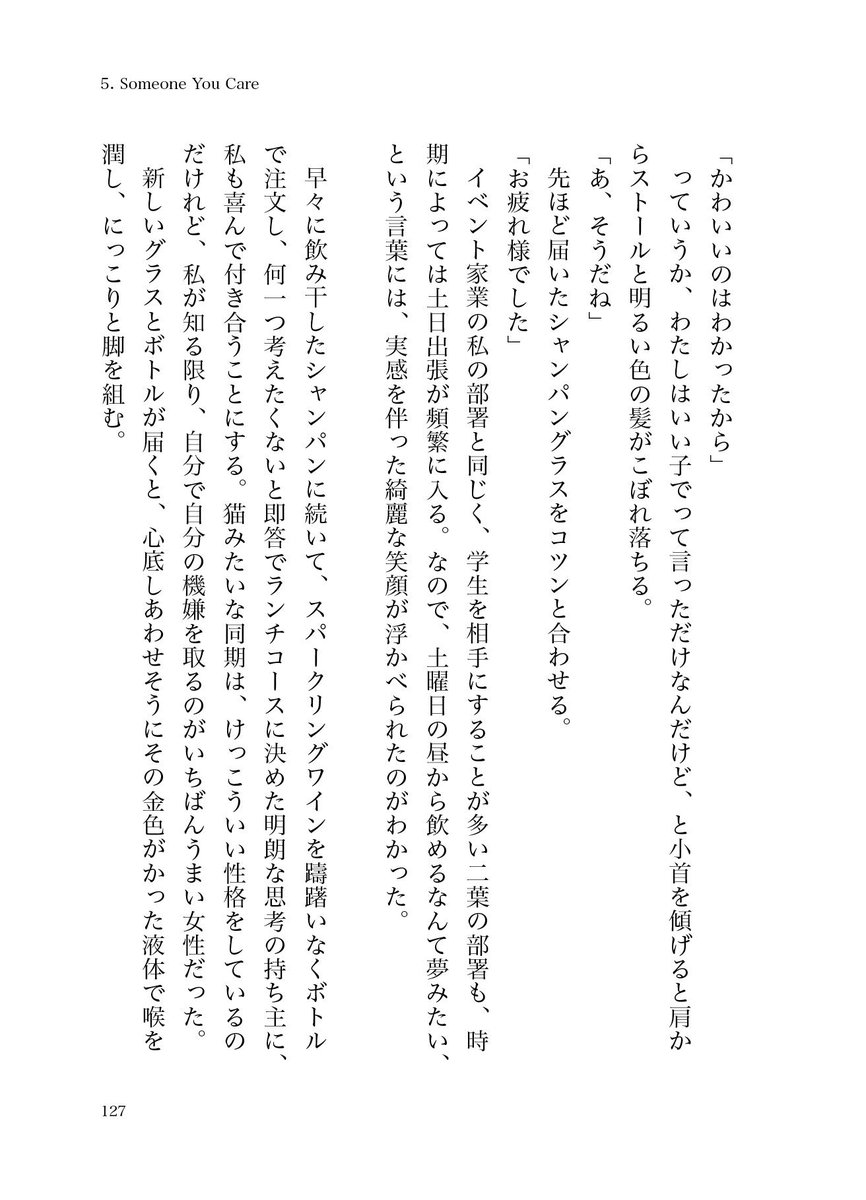 5. Someone You Care
「かわいいのはわかったから」
っていうか、わたしはいい子でって言っただけなんだけど、と小首を傾げると肩か
らストールと明るい色の髪がこぼれ落ちる。
「あ、そうだね」
先ほど届いたシャンパングラスをコツンと合わせる。
「お疲れ様でした」
イベント家業の私の部署と同じく、学生を相手にすることが多い二葉の部署も、時
期によっては土日出張が頻繁に入る。なので、土曜日の昼から飲めるなんて夢みたい、
という言葉には、実感を伴った綺麗な笑顔が浮かべられたのがわかった。
早々に飲み干したシャンパンに続いて、スパークリングワインを躊躇いなくボトル
で注文し、何一つ考えたくないと即答でランチコースに決めた明朗な思考の持ち主に、
私も喜んで付き合うことにする。猫みたいな同期は、けっこういい性格をしているの
だけれど、私が知る限り、自分で自分の機嫌を取るのがいちばんうまい女性だった。
新しいグラスとボトルが届くと、心底しあわせそうにその金色がかった液体で喉を
潤し、にっこりと脚を組む。
127